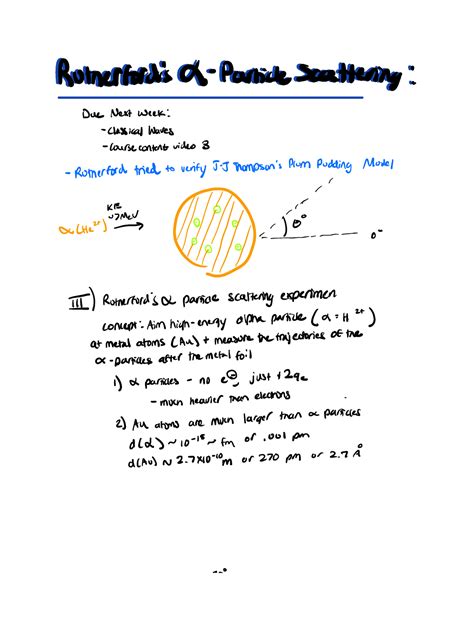 Rutherford's α-Particle Scattering:
Due Next Week:
- Classical Waves
- Course content video 3
- Rutherford tried to verify J.J Thompson's Plum Pudding Model
KE
~7MeV
α(He²⁺)
θ°
0°
III) Rutherford's α particle scattering experimen
concept: Aim high-energy alpha particle (α = H²⁺)
at metal atoms (Au) + measure the trajectories of the
α-particles after the metal foil
1) α particles - no e⊖ just +2qe
- much heavier than electrons
2) Au atoms are much larger than α particles
d(α) ~ 10⁻¹⁵ ~ fm or .001 pm
d(Au) ~ 2.7x10⁻¹⁰ m or 270 pm or 2.7 Å